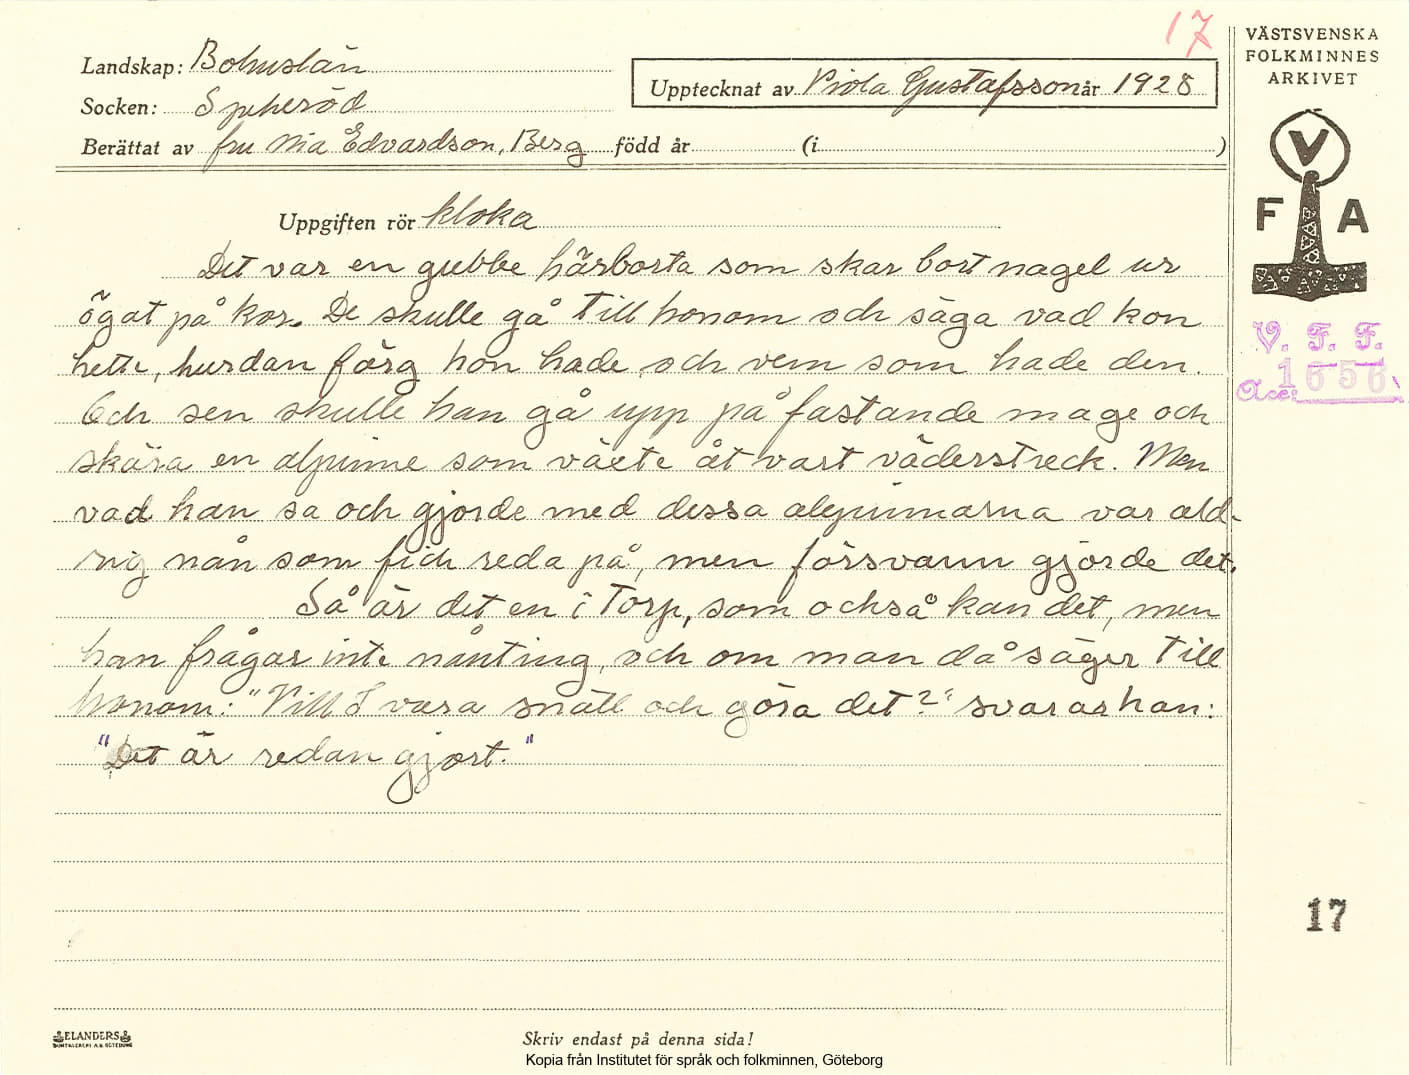 17
Landskap: Bohuslän
Socken: Spekeröd
Berättat av fru Mia Edvardson, Berg född år (i )
Upptecknat av Viola Gustafsson år 1928
VÄSTSVENSKA
FOLKMINNES
ARKIVET
V
F A
V. F. F.
Acc: 1656
Uppgiften rör kloka
Det var en gubbe härborta som skar bort nagel ur
ögat på kor. De skulle gå till honom och säga vad kon
hette, hurdan färg hon hade och vem som hade den.
Och sen skulle han gå upp på fastande mage och
skära en alpinne som växte åt vart väderstreck. Men
vad han sa och gjorde med dessa alepinnarna var ald-
rig nån som fick reda på, men försvann gjorde det.
Så är det en i Torp, som också kan det, men
han frågar inte nånting, och om man då säger till
honom: "Vill I vara snäll och göra det?" svarar han:
"Det är redan gjort."
17
ELANDERS
Skriv endast på denna sida!
Kopia från Institutet för språk och folkminnen, Göteborg